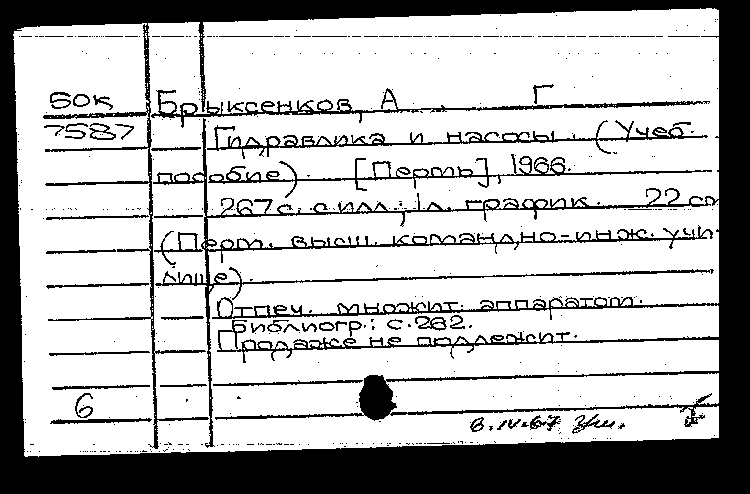 БОК Брыксенков, А. Г
7587 Гидравлика и насосы. (Учеб.
пособие). [Пермь], 1966.
267с. с илл.; 1л. график. 22 см
(Перм. высш. командно-инж. учи-
лище).
Отпеч. множит. аппаратом.
Библиогр.: с. 262.
Продаже не подлежит.
6